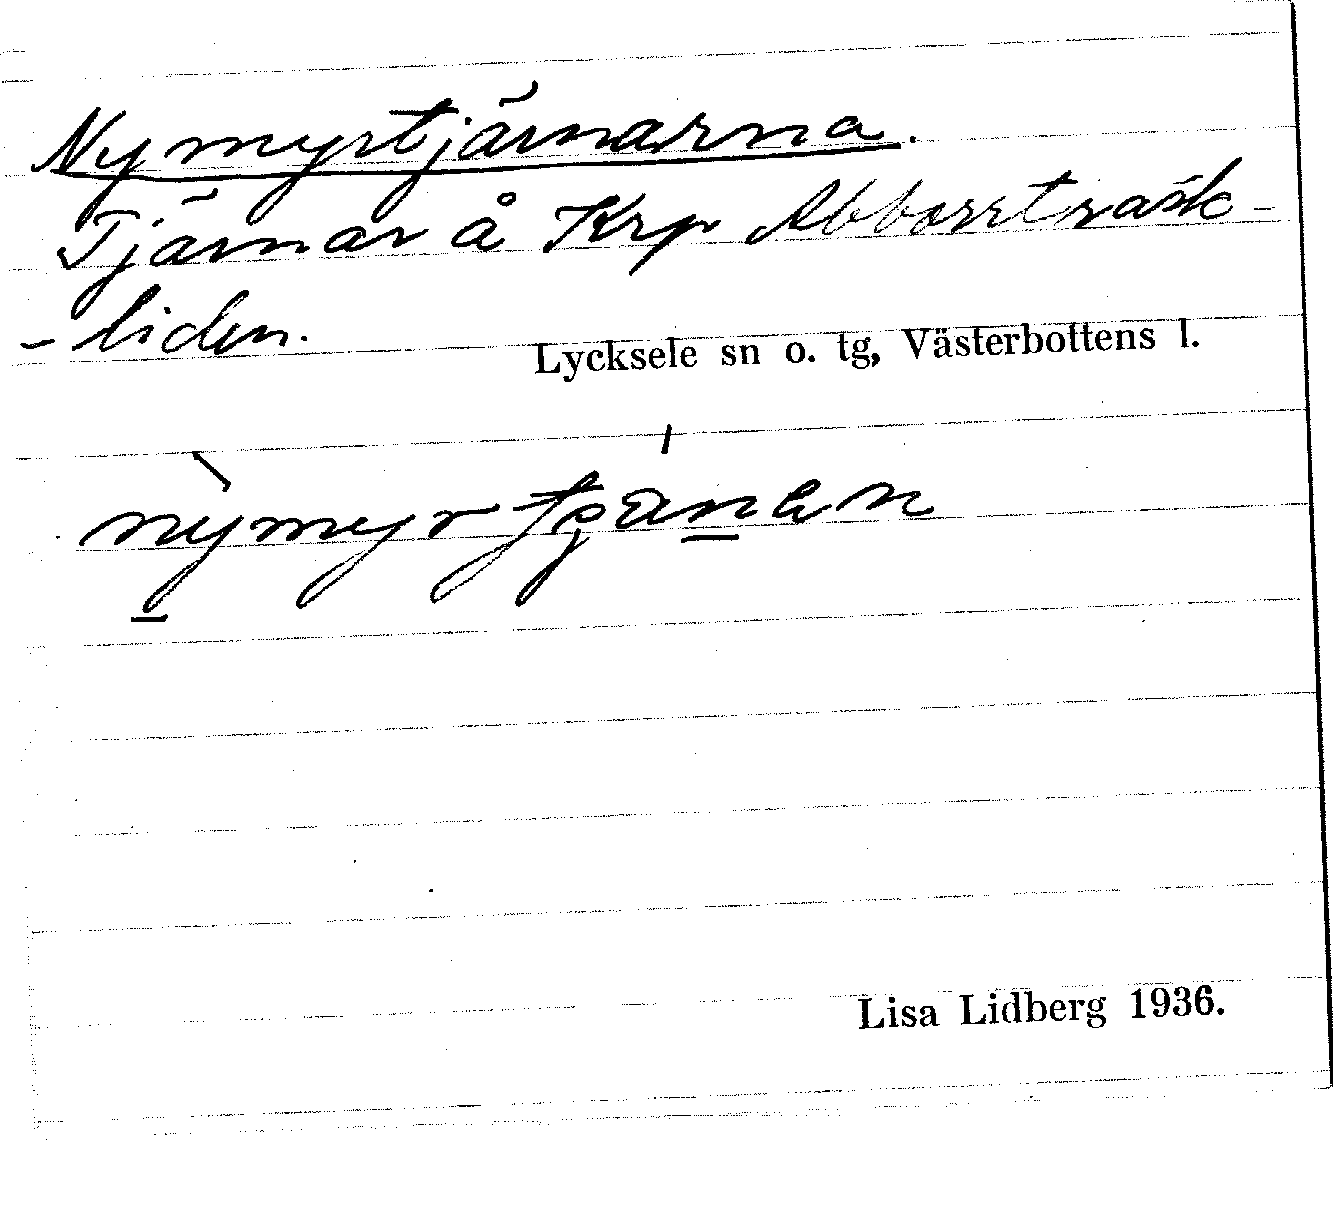 Nymyrtjärnarna.
Tjärnar å Krp Abborrträsk-
-liden.
Lycksele sn o. tg, Västerbottens l.
Lisa Lidberg 1936.